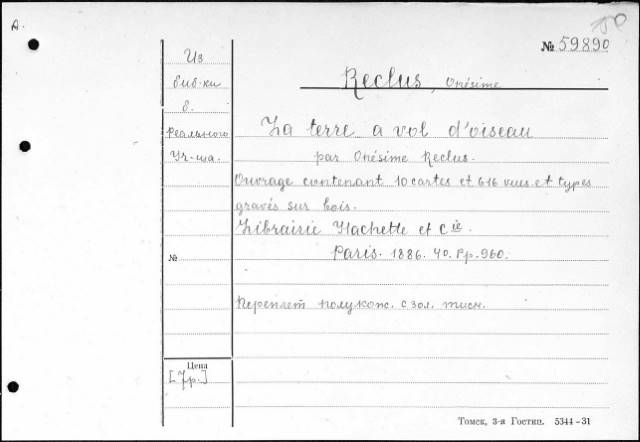 А.
№ 59890
Из
биб-ки
б.
реального
Уч-ща.
№
Цена
[7р.]
Reclus, Onésime
La terre a vol d'oiseau
par Onésime Reclus.
Ouvrage contenant 10 cartes et 616 vues et types
gravés sur bois.
Librairie Hachette et Cie.
Paris. 1886. 4o. Pp. 960.
Переплет полукож. с зол. тисн.
Томск, 3-я Гостип. 5344-31